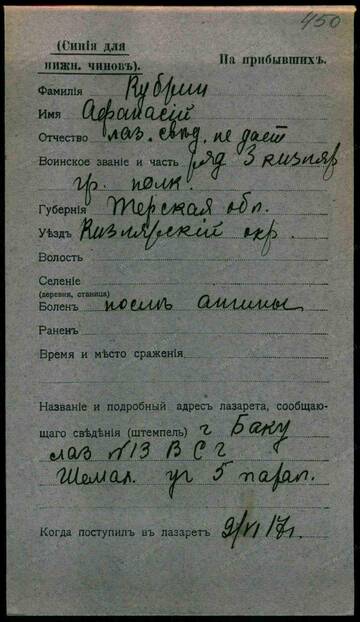 450
(Синія для
нижн. чиновъ).
На прибывшихъ.
Фамилія Кубрин
Имя Афанасій
Отчество лаз. свѣд. не дает
Воинское званіе и часть ряд 3 кизляр
гр. полк.
Губернія Терская обл.
Уѣздъ Кизлярскій окр.
Волость
Селеніе
(деревня, станица)
Боленъ послѣ ангины
Раненъ
Время и мѣсто сраженія
Названіе и подробный адресъ лазарета, сообщаю-
щаго свѣдѣнія (штемпель) г Баку
лаз N 13 В С Г
Шемах. уг 5 парал.
Когда поступилъ въ лазаретъ 9/VI 17 г.